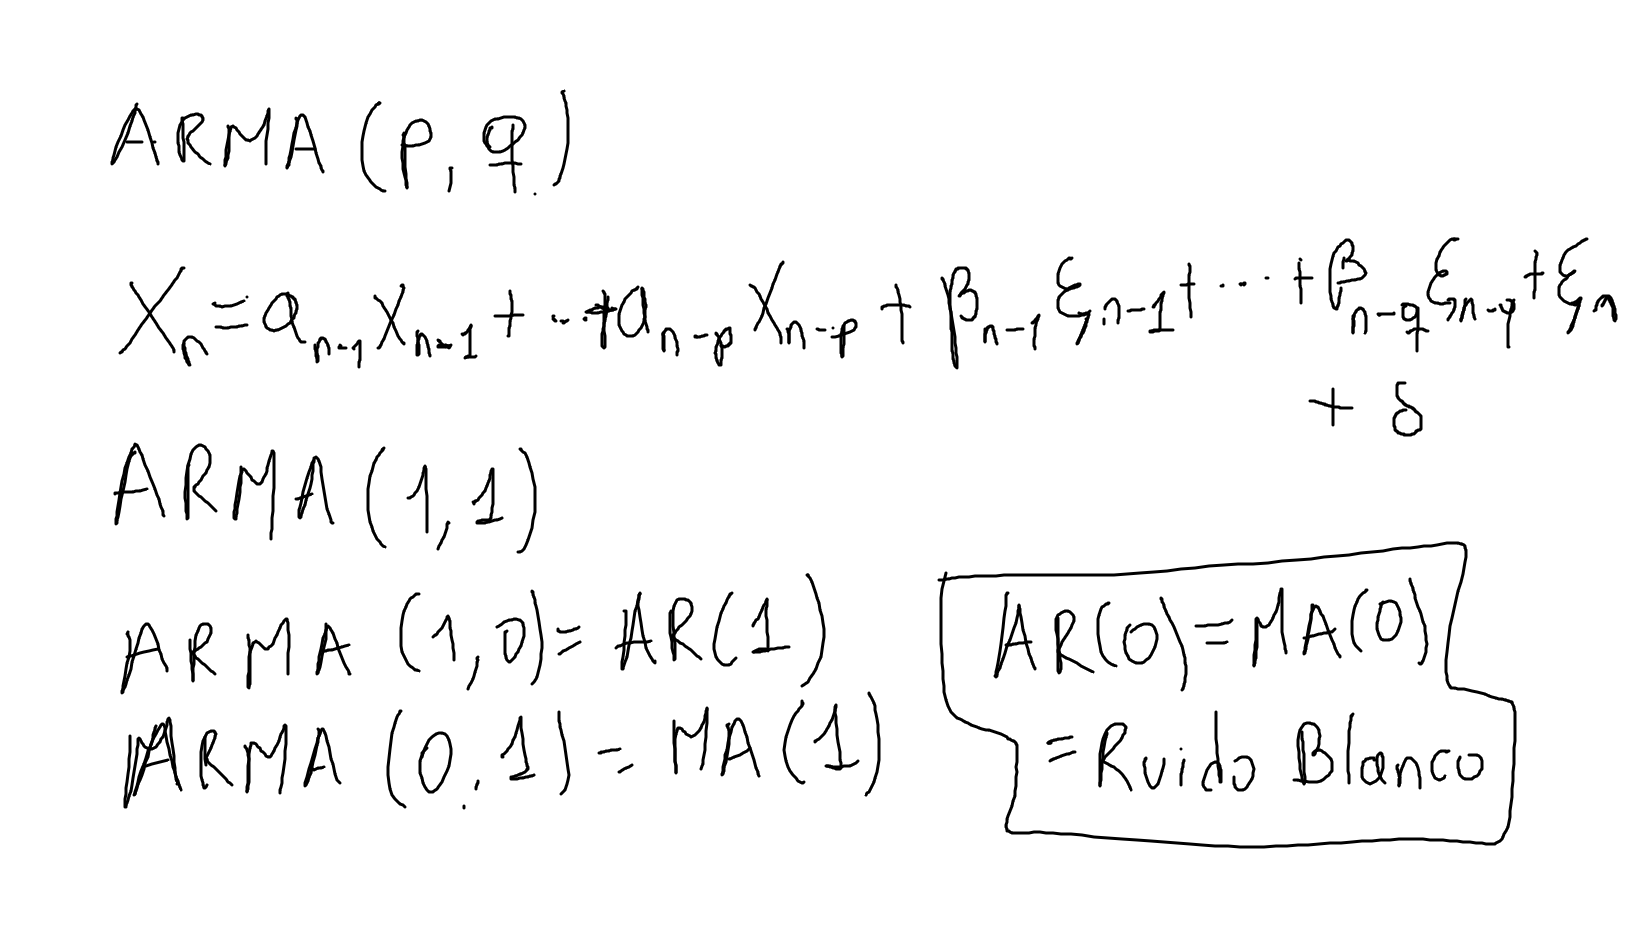 ARMA(p, q)
Xₙ = aₙ₋₁Xₙ₋₁ + ... + aₙ₋ₚXₙ₋ₚ + βₙ₋₁ξₙ₋₁ + ... + β_{n-q}ξ_{n-q} + ξₙ
+ δ
ARMA(1,1)
ARMA (1,0) = AR(1)
ARMA (0,1) = MA(1)
AR(0) = MA(0)
= Ruido Blanco